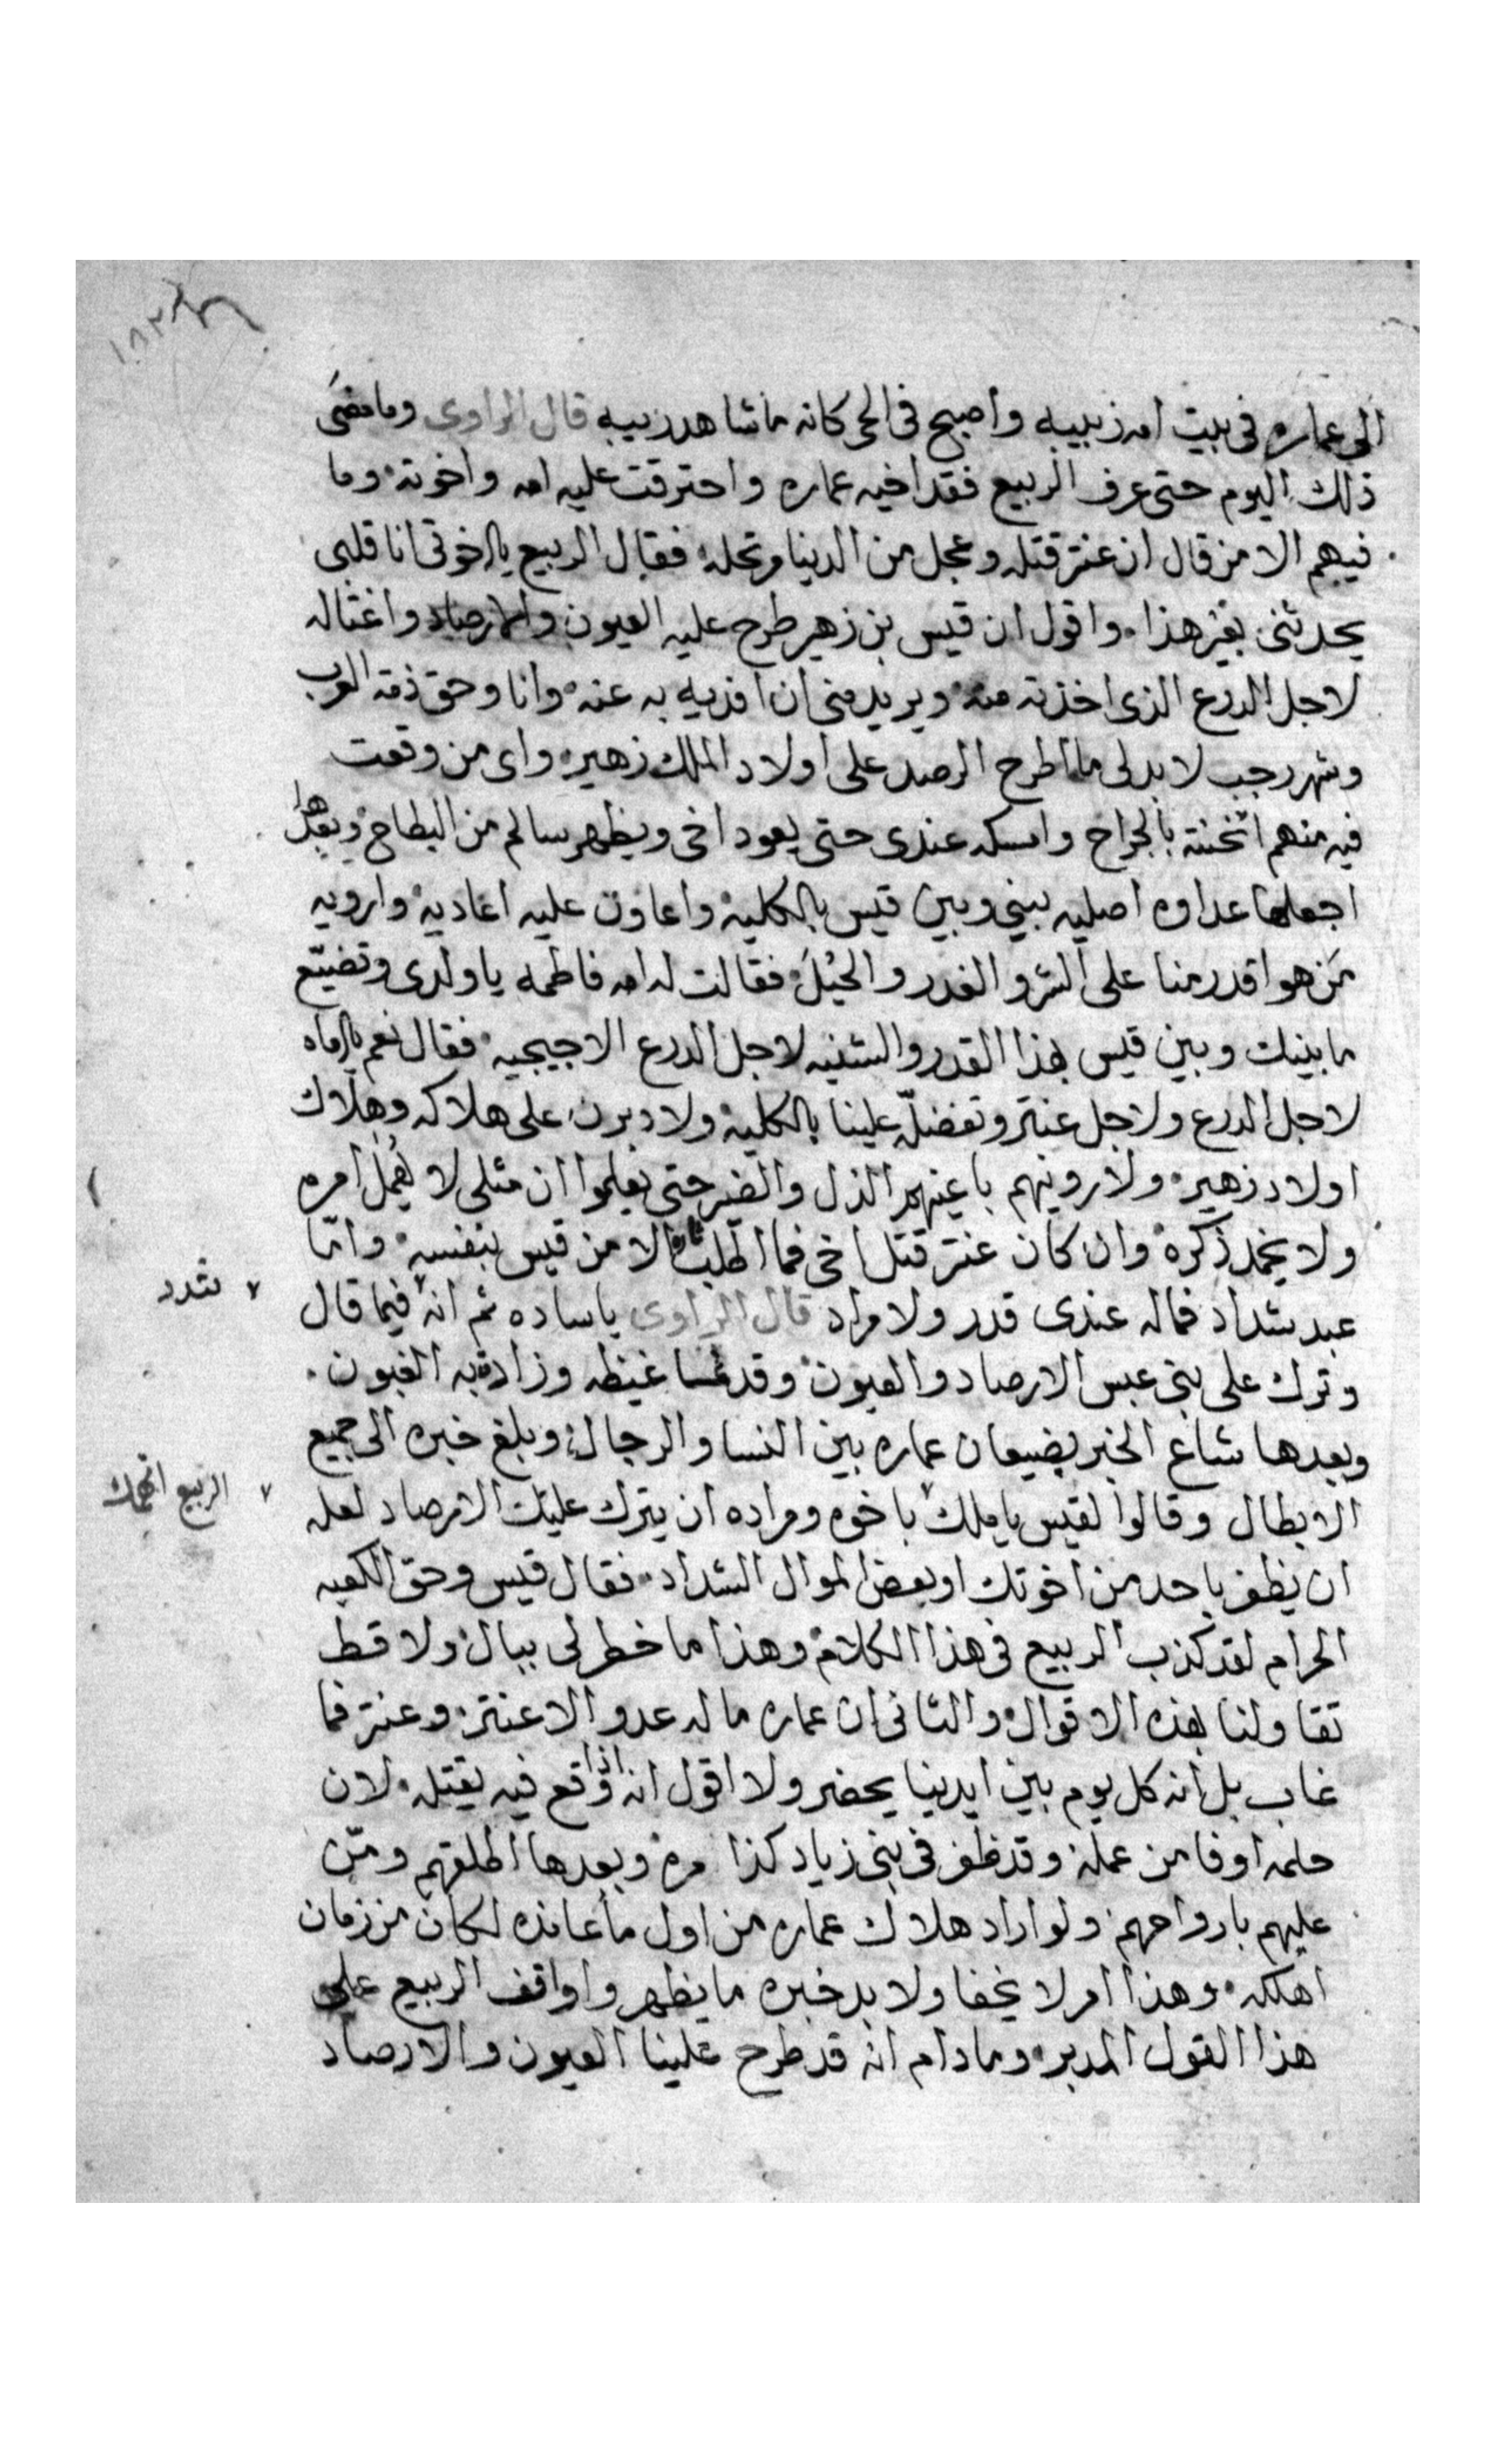 ١٨٢
الى عماره فى بيت امه زبيبه واصبح فى الحى كانه ما شاهد زبيبه قال الراوى وما مضى
ذلك اليوم حتى عرف الربيع فقد اخيه عماره واحترقت عليه امه واخوته وما
فيهم الا من قال ان عنتر قتله وعجل من الدينا مرتحله فقال الربيع يا اخوتى انا قلبى
يحدثنى بغير هذا واقول ان قيس بن زهير طرح عليه العيون والارصاد واغتاله
لاجل الدرع الذى اخذته منه ويريد منى ان افديه به عنه وانا وحق ذمة العرب
وشهر رجب لا بد لى ما اطرح الرصد على اولاد الملك زهير واى من وقعت
فيه منهم اثخنته بالجراح وامسكه عندى حتى يعود اخى ويظهر سالم من البطاح وبعدها
اجعلها عداوه اصليه بينى وبين قيس بالكليه واعاون عليه اعاديه واروبه
من هو اقدر منا على الشر والغدر والحيل فقالت له امه فاطمه يا ولدى وتضيّع
ما بينك وبين قيس بهذا القدر والشنيه لاجل الدرع الاجيجيه فقال نعم يا اماه
لاجل الدرع ولاجل عنتر وتفضلّه علينا بالكليه ولادبرن على هلاكه وهلاك
اولاد زهير ولاروينهم باعينهم الذل والضير حتى يعلموا ان مثلى لا يهمل امره
ولا يخمد ذكره وان كان عنتر قتل اخى فما اطلب ثاره الا من قيس بنفسه وامّا
عبد شداد فماله عندى قدر ولا مراد قال الراوى يا ساده ثم انه فيما قال
تشدد
وترك على بنى عبس الارصاد والعيون وقد غسا غيظه وزاد به الغبون
وبعدها شاع الخبر بضيعان عماره بين النسا والرجال وبلغ خبره الى جميع
الابطال وقالوا لقيس يا ملك باخوه ومراده ان يترك عليك الارصاد لعله
الربيع اتهمك
ان يظفر باحد من اخوتك او بعض اموال الشداد فقال قيس وحق الكعبه
الحرام لقد كذب الربيع فى هذا الكلام وهذا ما خطر لى ببال ولا قط
تقاولنا بهذه الاقوال والثانى ان عماره ما له عدو الا عنتر وعنتر فما
غاب بل انه كل يوم بين ايدينا يحضر ولا اقول انه اذا وقع فيه يقتله لان
حلمه اوفا من عمله وقد ظفر فى بنى زياد كذا مره وبعدها اطلقهم ومّن
عليهم بارواحهم ولو اراد هلاك عماره من اول ما عانده لكان من زمان
اهلكه وهذا امر لا يخفا ولا بد خبره ما يظهر واواقف الربيع على
هذا القول المدبر وما دام انه قد طرح علينا العيون والارصاد